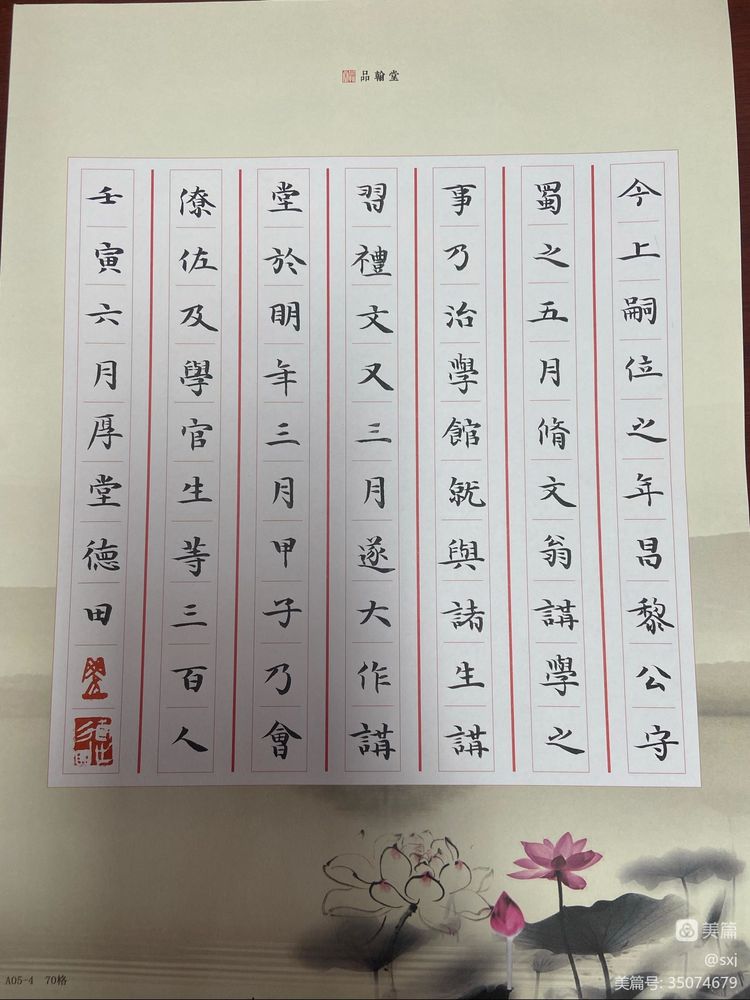 品翰堂
今上嗣位之年昌黎公守
蜀之五月脩文翁講學之
事乃治學館就與諸生講
習禮文又三月遂大作講
堂於明年三月甲子乃會
僚佐及學官生等三百人
壬寅六月厚堂德田
A05-4 70格
美篇
@sxj
美篇号: 35074679